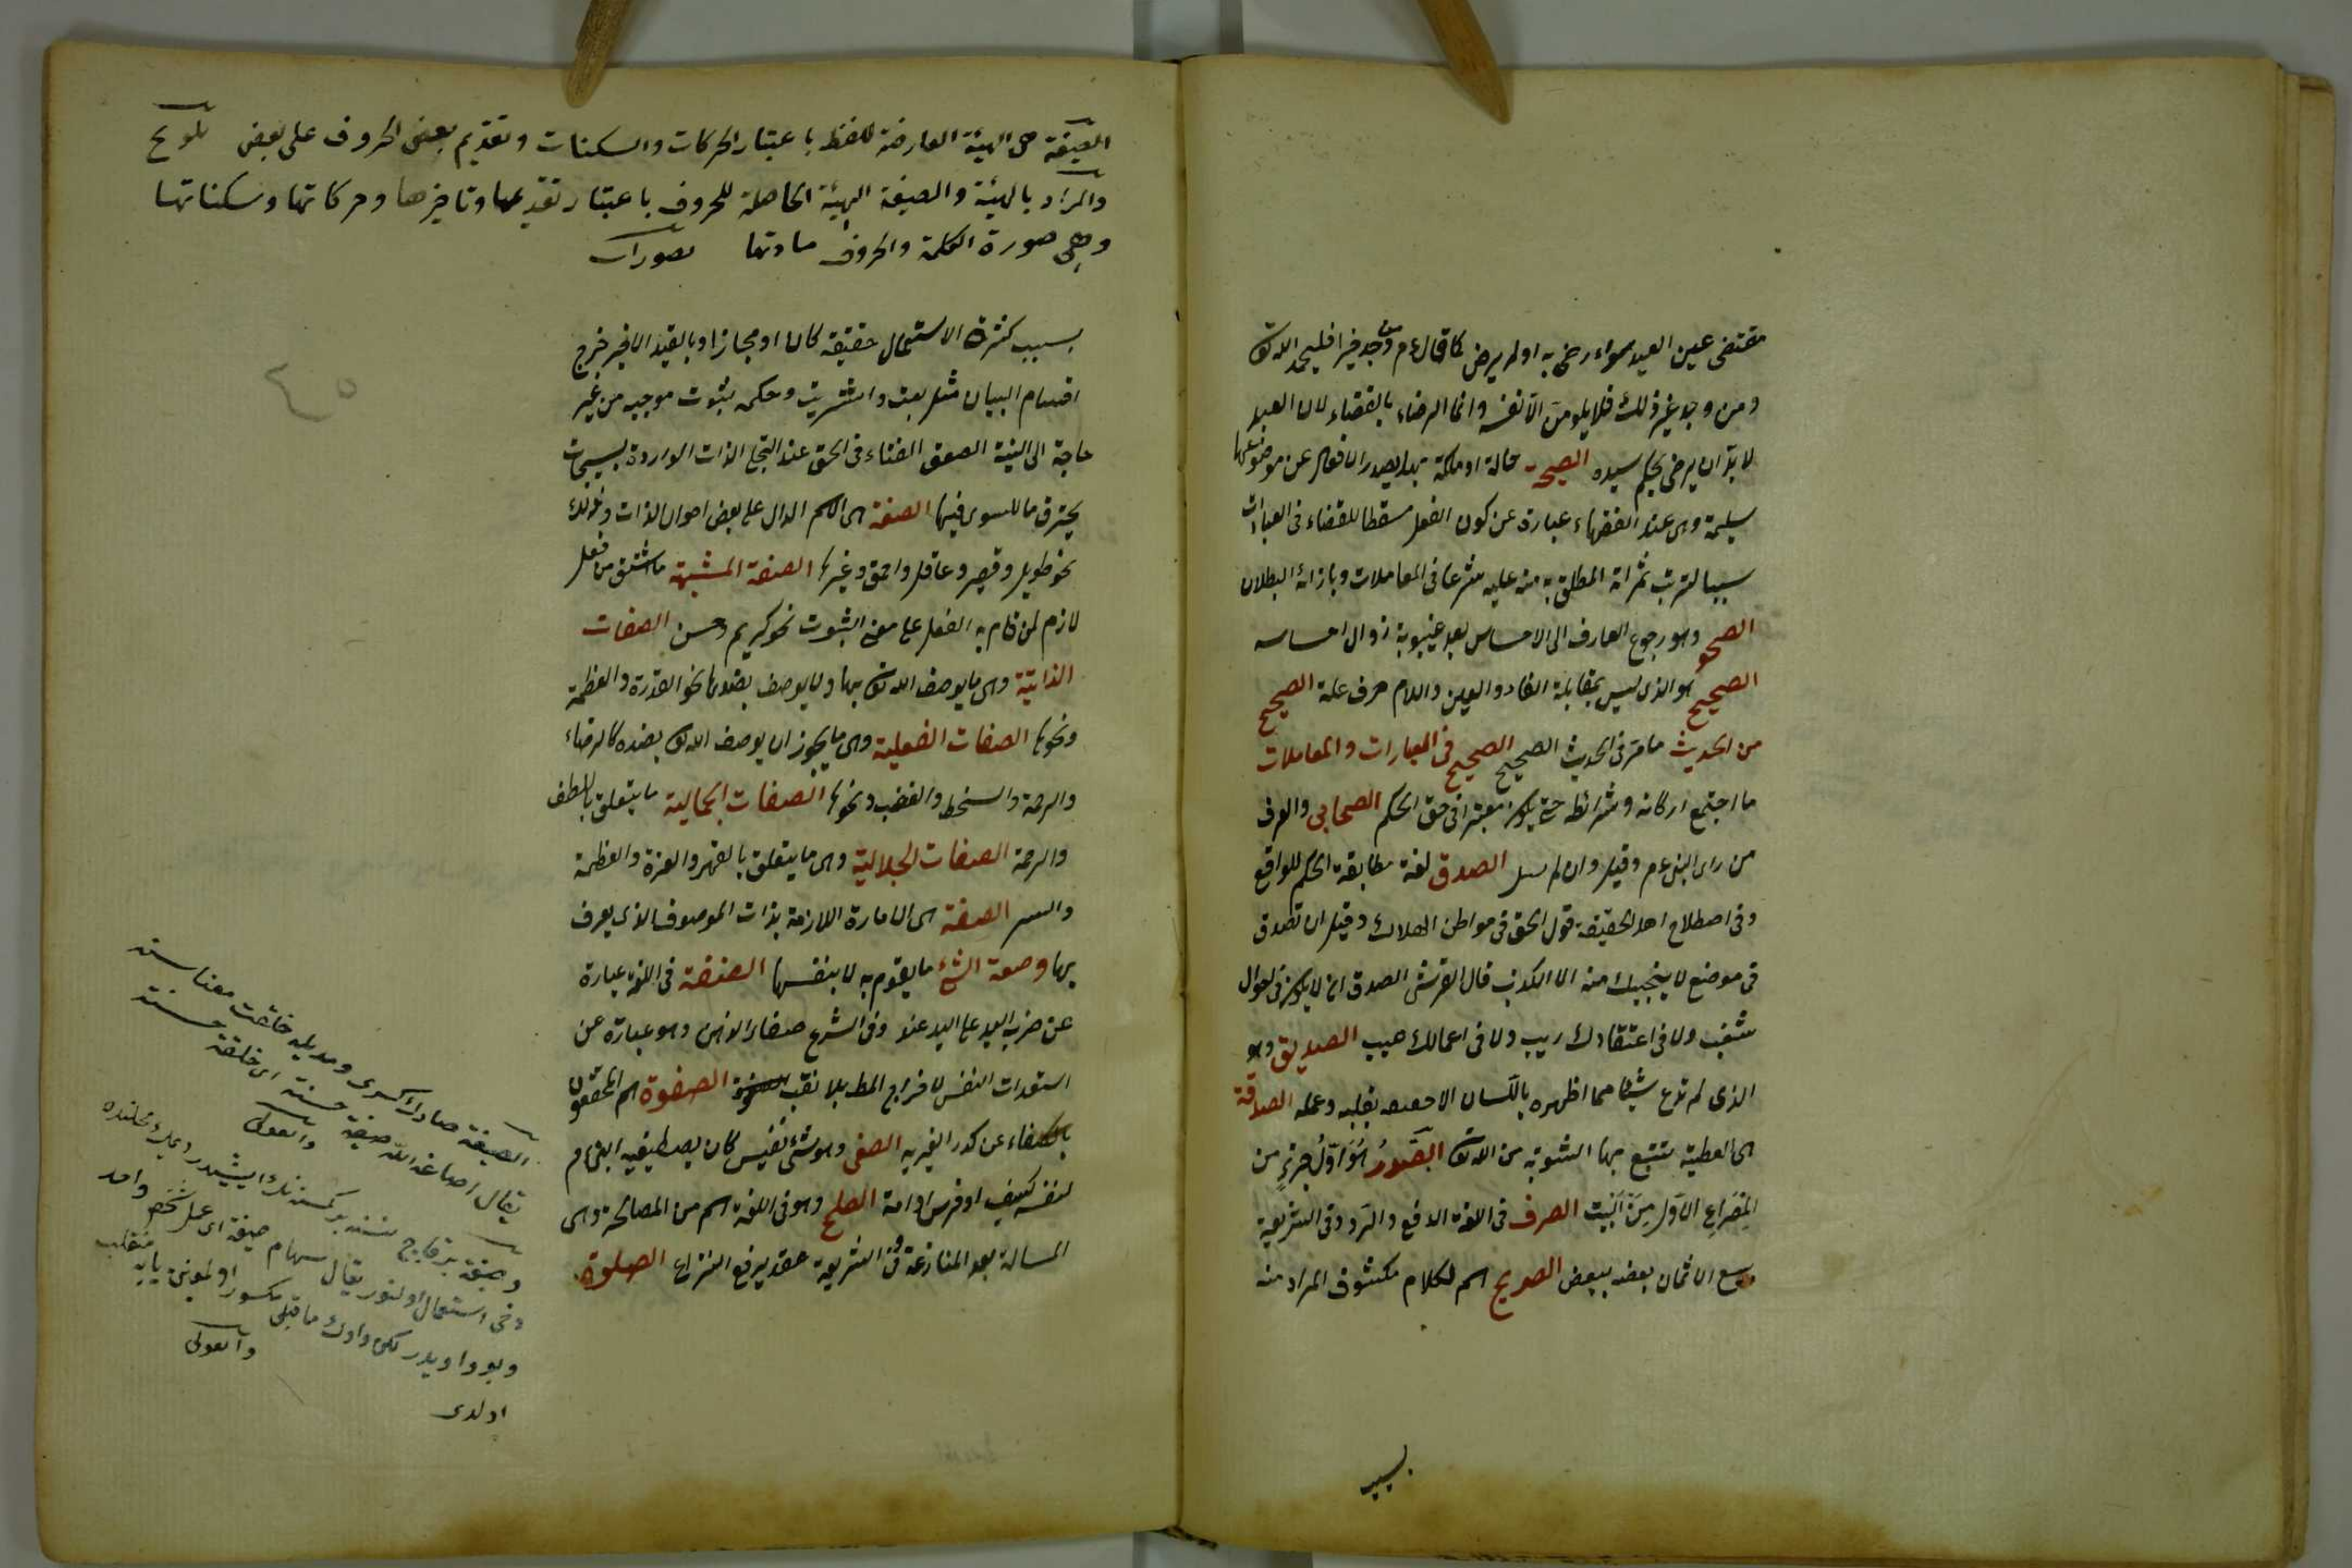 مقتضى عين العبد سواء رضى به او لم يرض كما قال عم من وجد خيرا فليحمد الله تعالى
ومن وجد غير ذلك فلا يلومن الا نفسه وانما الرضاء بالقضاء لان العبد
لا بد ان يرضى بحكم سيده الصحة حالة او ملكة بها يصدر الافعال عن موضوعها
سليمة وهى عند الفقهاء عبارة عن كون الفعل مسقطا للقضاء فى العبادات
سببا لترتب ثمراته المطلوبة منه عليه شرعا فى المعاملات وبازائه البطلان
الصحو وهو رجوع العارف الى الاحساس بعد غيبوبة زوال احساسه
الصحيح هو الذى ليس بمقابلة الفاء والعين واللام حرف علة الصحيح
من الحديث ما مر فى الحديث الصحيح الصحيح فى العبارات والمعاملات
ما اجتمع اركانه وشرائطه حتى يكون معتبرا فى حق الحكم الصحابى والعرف
من راى النبى عم وقيل وان لم الصدق لغة مطابقة الحكم للواقع
وفى اصطلاح اهل الحقيقة قول الحق فى مواطن الهلاك وقيل ان تصدق
فى موضع لا ينجيك منه الا الكذب قال القرشى الصدق ان لا يكون فى احوال
شغب ولا فى اعتقادك ريب ولا فى اعمالك عيب الصديق وهو
الذى لم تدع شيئا مما اظهره باللسان الا حققه بقلبه وعمله الصدقة
هى العطية تبتغى بها المثوبة من الله تعالى الصدر هو اول جزء من
المصراع الاول من البيت الصرف فى اللغة الدفع والرد وفى الشريعة
بيع الاثمان بعضه ببعض الصريح اسم لكلام مكشوف المراد منه
بسبب
الصيغة هى الهيئة العارضة للفظ باعتبار الحركات والسكنات وتقديم بعض الحروف على بعض تلويح
والمراد بالهيئة والصيغة الهيئة الحاصلة للحروف باعتبار تقديمها وتاخيرها وحركاتها وسكناتها
وهى صورة الكلمة والحروف مادتها تصورات
٤٥
بسبب كثرة الاستعمال حقيقة كان او مجازا وبالقيد الاخير خرج
اقسام البيان مثل بعت واشتريت وحكمه ثبوت موجبه من غير
حاجة الى النية الصعق الفناء فى الحق عند التجلى الذات الواردة بسبحات
يحترق ما للسوى فيها الصفة هى الاسم الدال على بعض احوال الذات وذلك
نحو طويل وقصير وعاقل واحمق وغيرها الصفة المشبهة ما اشتق من فعل
لازم لمن قام به الفعل على معنى الثبوت نحو كريم وحسن الصفات
الذاتية وهى ما يوصف الله تعالى بها ولا يوصف بضدها نحو القدرة والعظمة
ونحوها الصفات الفعلية وهى ما يجوز ان يوصف الله تعالى بضده كالرضاء
والرحمة والسخط والغضب ونحوها الصفات الجمالية ما يتعلق باللطف
والرحمة الصفات الجلالية وهى ما يتعلق بالقهر والعزة والعظمة
والسر الصفة هى الامارة اللازمة بذات الموصوف الذى يعرف
بها وصفة الشئ ما يقوم به لا بنفسها الصفقة فى اللغة عبارة
عن ضرب اليد على اليد عند وفى الشرع صفاء الذهن وهو عبارة عن
استعداد النفس لاخراج المط بلا تعب الصفوة هم المحققون
بالصفاء عن كدر الغيرية الصفى وهو شئ نفيس كان يصطفيه النبى عم
لنفسه كسيف او فرس او امة الصلح وهو فى اللغة اسم من المصالحة وهى
المسالمة بعد المنازعة وفى الشريعة عقد يرفع النزاع الصلوة
الصيغة صادك كسرى ومديله خلقت معناسنه
يقال اصاغه الله صيغة حسنة اى خلقة حسنة
وانقولى
وفى استعمال اولنور يقال سهام صيغة اى عمل شخص واحد
وبو واويدر لكن واوك ما قبلى مكسور اولمغين يايه منقلب
اولدى
وانقولى